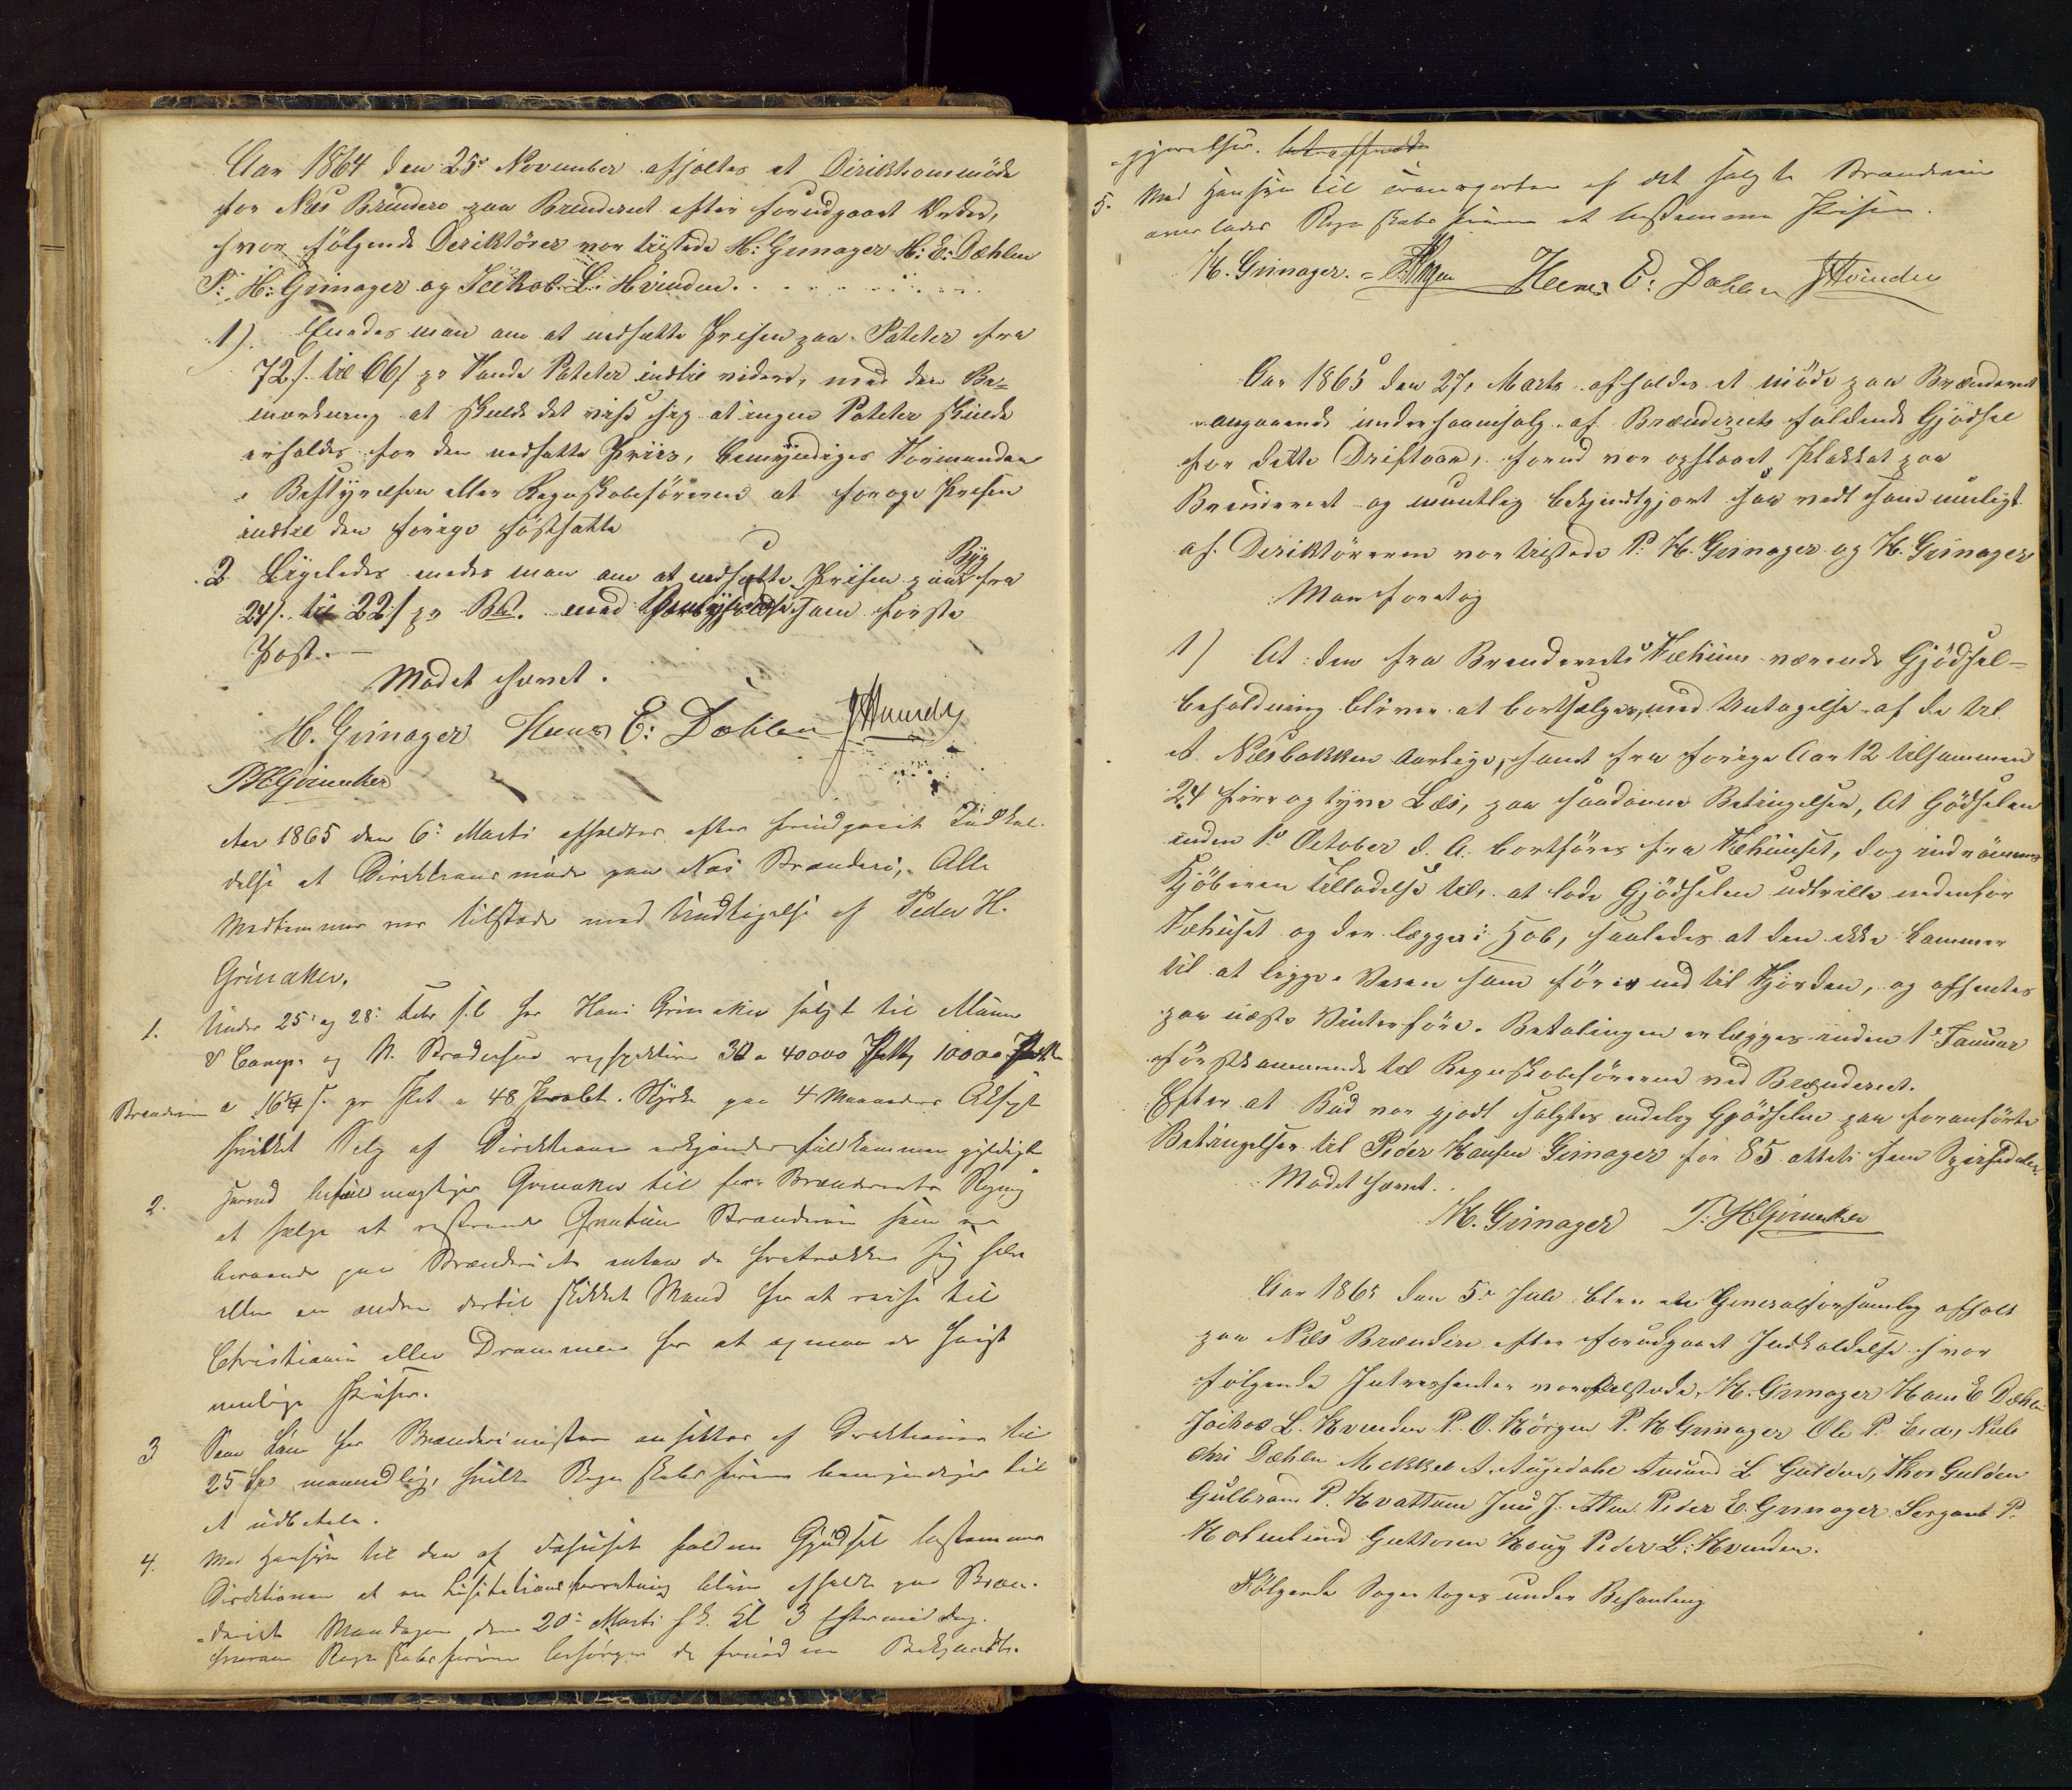 Aar 1864 den 25de November afholtes et Diriktionsmöde
for Næs Brænderi paa Brenderiet efter forudgaaet Orden,
hvor følgende Deriktörer var tilstede H: Grinager H: E: Dæhlen
P: H: Grinager og Jeikob L. Hvinden.
1) Enedes man om at nedsætte Prisen paa Poteter fra
72 s. til 66 s pr Tønde Poteter indtil videre, med den Be-
merkning at skulde det vise sig at ingen Poteter skulde
erholdes for den nedsatte Priis, bemyndiges Formanden
i Bestyrelsen eller Regnskabsföreren at foröge Prisen
indtil den forige fastsatte
2 Ligeledes enedes man om at nedsætte Prisen paa Byg fra
24 s. til 22 s pr B. med som første
Post. —
Mødet hævet.
H. Grinager Hans E: Dæhlen JHvinden
PHGrinaker
Aar 1865 den 6te Marts afholdtes efter forudgaaet Indkal-
delse et Direktionsmöde paa Næs Brænderi, Alle
Medlemmer var tilstede med Undtagelse af Peder H.
Grinaker.
1. Under 25de og 28de Febr s.l. har Hans Grinaker solgt til Münn
& Comp. og N. respektive 30 a 40000 Potter 10000 Potter
Brændevin a 16¼ s. pr Pot a 48 Styrke paa 4 Maaneders Aksept
hvilket Salg af Direktionen erkjendes fuldkommen gyldigt
2. herved befuldmægtiges Grinaker til for Brænderiets Regning
at sælge et resterende Qvantum Brændevin som er
beroende paa Brænderiet enten de foretrækker sig selv
eller en anden dertil skikket Mand for at reise til
Christiania eller Drammen for at opnaa de høiest
mulige Priser.
3 Som Løn for Brænderimesteren ansættes af Direktionen til
25 Spd maanedlig, hvilke Regnskabsføreren bemyndiges til
at udbetale.
4. Med Hensyn til den af Fæhuset faldne Gjødsel bestemmer
Direktionen at en Lisitationsforretning bliver afholdt paa Bræn-
deriet Mandagen den 20de Marts f.k. Kl 3 Eftermiddag.
hvorom Regnskabsføreren besørger de fornødne Bekjendt-
gjørelser.
5. Med Hensyn til af det solgte Brændevin
overlades Regnskabsføreren at bestemme Prisen.
H. Grinager. Hans E: Dæhlen JHvinden
Aar 1865 den 27de Marts afholdes et möde paa Brænderiet
angaaende underhaandsalg af Brænderiets faldende Gjödsel
for dette Driftsaar, forud var opslaaet Plakkat paa
Brenderiet og mundtlig bekjendtgjort saa vidt som muligt
af Deriktörerne var tilstede P: H. Grinager og H. Grinager
Man foretog
1) At den fra Brenderiets Fæhuus værende Gjödsel-
beholdning bliver at bortsælges, med Untagelse af de til
A. Næsbakken aarlige, samt fra forige Aar 12 tilsammen
24 fire og tyve Læs, paa saadanne Betingelser, At Gödselen
inden 1ste October d. A. bortføres fra Fæhuuset, dog indrömmes
Kjöberen tilladelse til, at lade Gjödselen udtrille nedenfor
Fæhuset og der lægges i Hob, saaledes at den ikke kommer
til at ligge i Veien som förer ned til Fjorden, og afhentes
paa næste Vinterföre. Betalingen erlægges inden 1ste Januar
förstkommende til Regnskabsföreren ved Brænderiet.
Efter at Bud var gjort solgtes endelig Gjödselen paa foranförte
Betingelser til Peder Hansen Grinager for 85 otteti fem Speciedaler.
Mødet hævet.
H. Grinager P: HGrinaker
Aar 1865 den 5te Juli blev en Generalforsamling afholt
paa Næs Brænderi efter forudgaaet Indkaldelse hvor
følgende Intressenter var tilstede, H. Grinager Hans E Dæhlen
Jeikob L. Hvinden P. O. Börgen P. H Grinager Ole P. Eid, Niels
Chri Dæhlen Mekkel A. Augedahl Amund L Gulden, Thor Gulden
Gulbrand P. Hvattum Jens J. Alm Peder E. Grinager Sergant P.
Holmlund Guttorm Haug Peder L: Hvinden.
Følgende Sager toges under Behandling